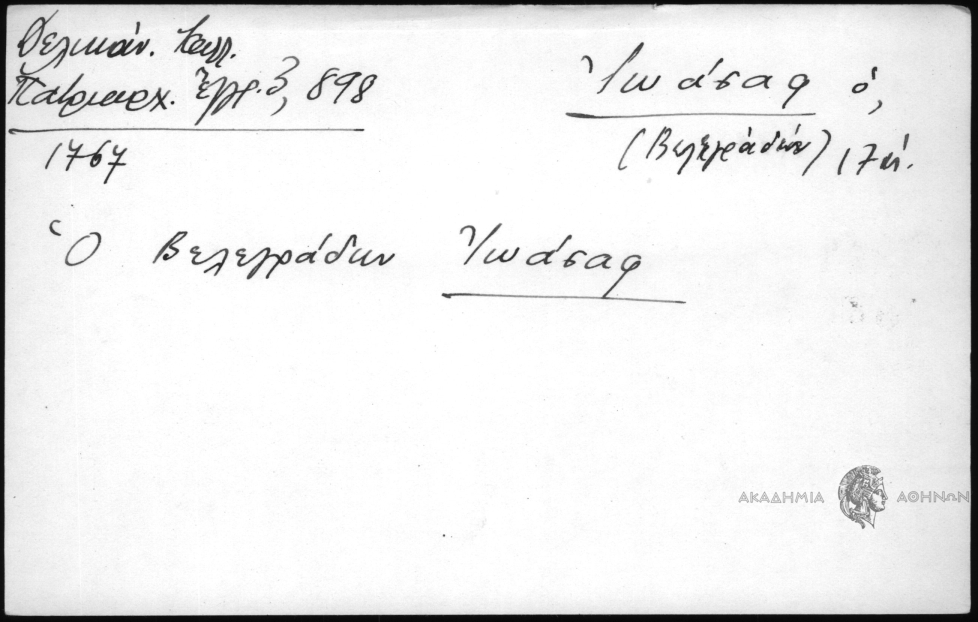 Δελικάν. Καλλ.
Πατριαρχ. Ἔγγρ. 3, 898
1767
Ἰωάσαφ ὁ,
(Βελεγράδων)
Ὁ Βελεγράδων Ἰωάσαφ
ΑΚΑΔΗΜΙΑ ΑΘΗΝΩΝ